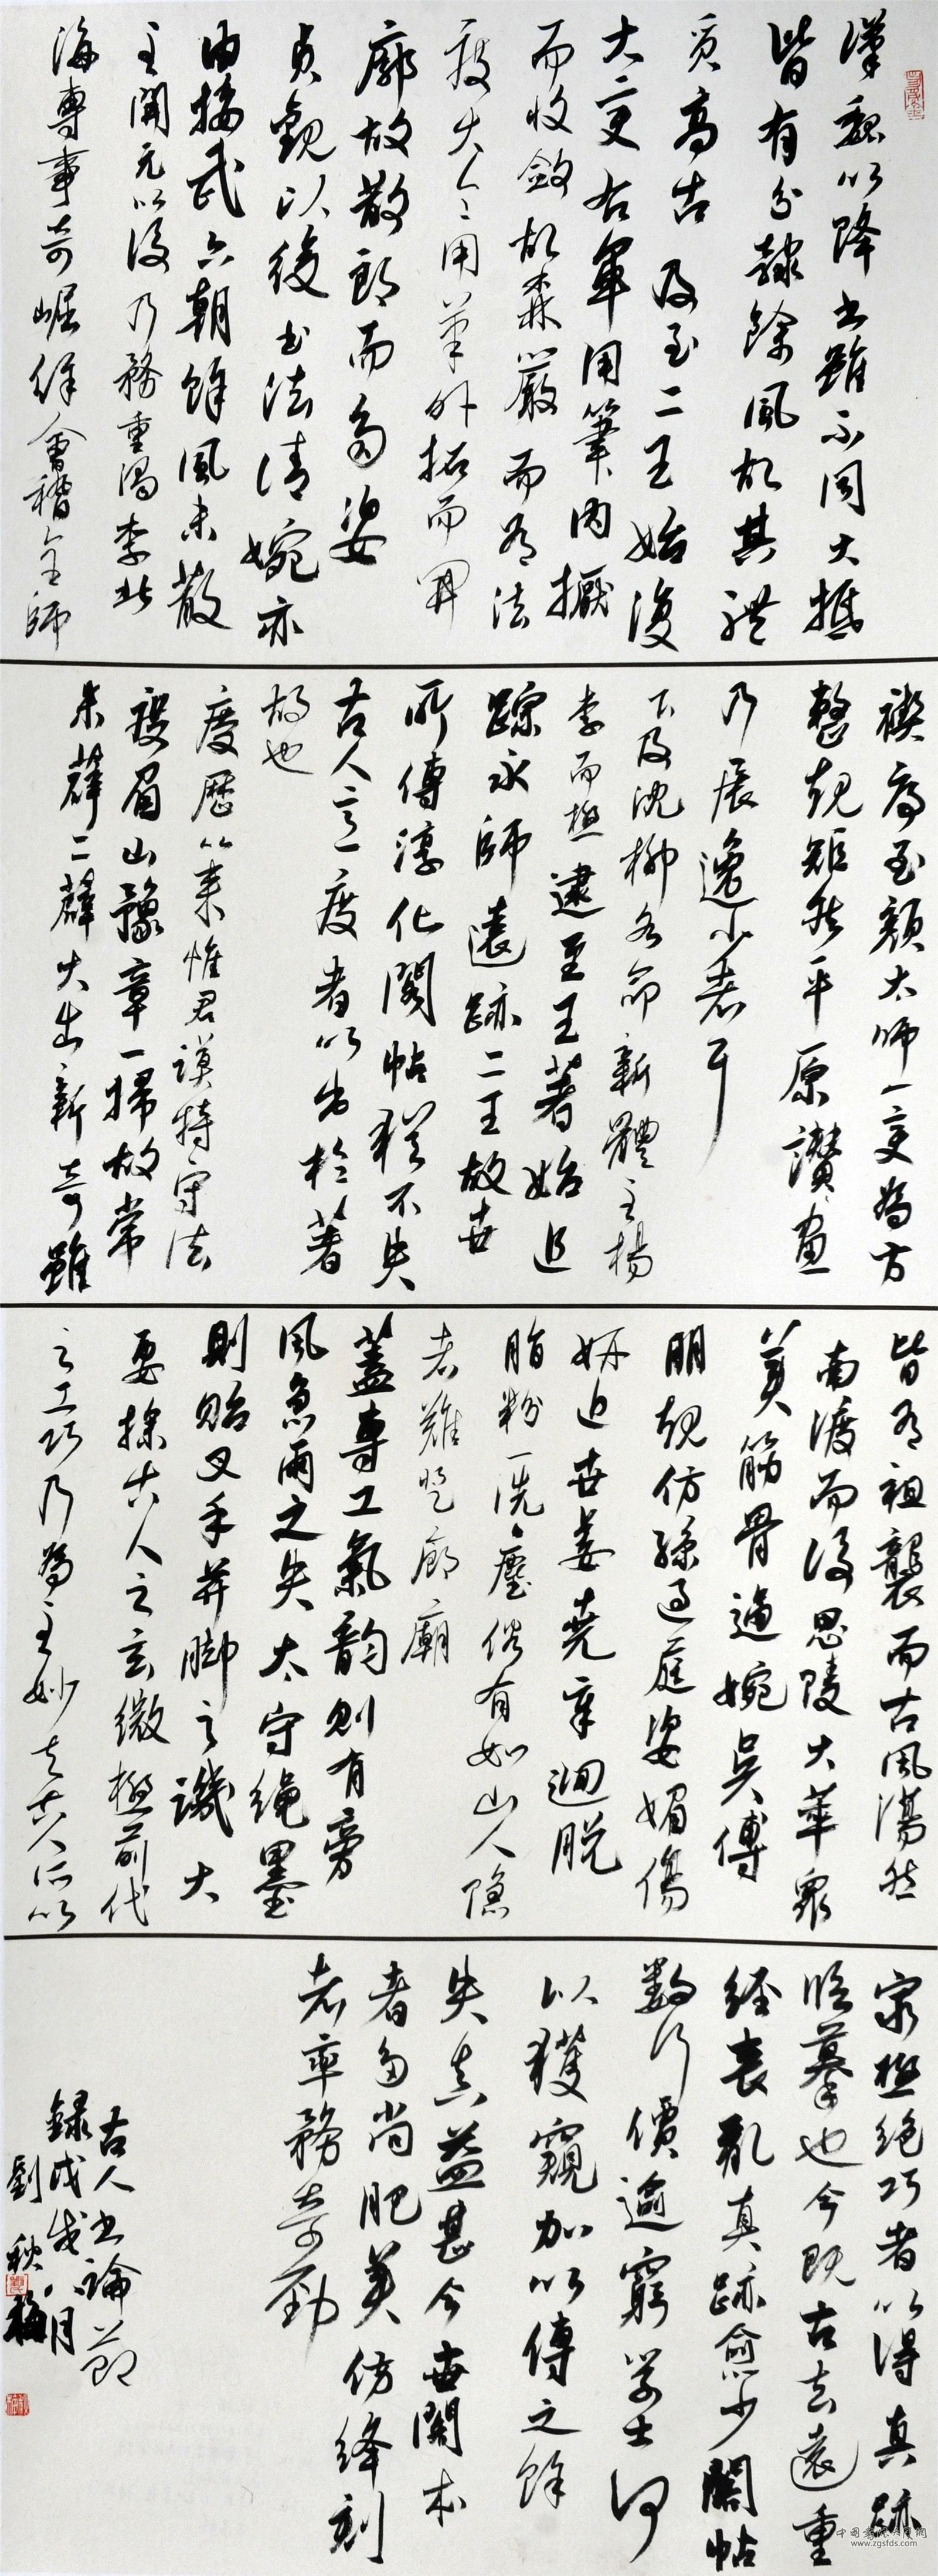 漢魏以降書雖不同大抵
皆有分隸餘風故其體
質高古及至二王始復
大變右軍用筆內擫
而收斂故森嚴而有法
度大令用筆外拓而開
廓故散朗而多姿
貞觀以後書法清婉亦
由接武六朝餘風未散
至開元以後乃務重濁李北
海專事奇崛徐會稽全師
禊序至顏太師一變為方
整規矩然平原讚畫
乃展逸少者耳
下及沈柳各命新體至楊
李而極逮至王著始追
蹤永師遠跡二王故世
所傳淳化閣帖猶不失
古人意度者以出於著
故也
慶歷以來惟君謨特守法
度眉山豫章一掃故常
米薛二蘇大出新奇雖
皆有祖襲而古風蕩然
南渡而後思陵大萃眾
美筋骨過婉吳傅
朋規仿孫過庭姿媚傷
妍近世姜堯章迥脫
脂粉一洗塵俗有如山人隱
者難登廊廟
蓋專工氣韵則有旁
風急雨之失太守繩墨
則貽叉手并腳之譏大
要探古人之玄微極前代
之工巧乃為至妙夫古人所以
窮極絕巧者以得真跡
臨摹也今既古去遠重
經喪亂真跡愈少閣帖
數行價逾窮學士何
以獲窺加以傳之餘
失真益甚今世開本
者多尚肥美仿絳刻
者率務奇勁
古人書論節
錄戊戌八月
劉秋梅
中国书法小学网
www.zgsfds.com